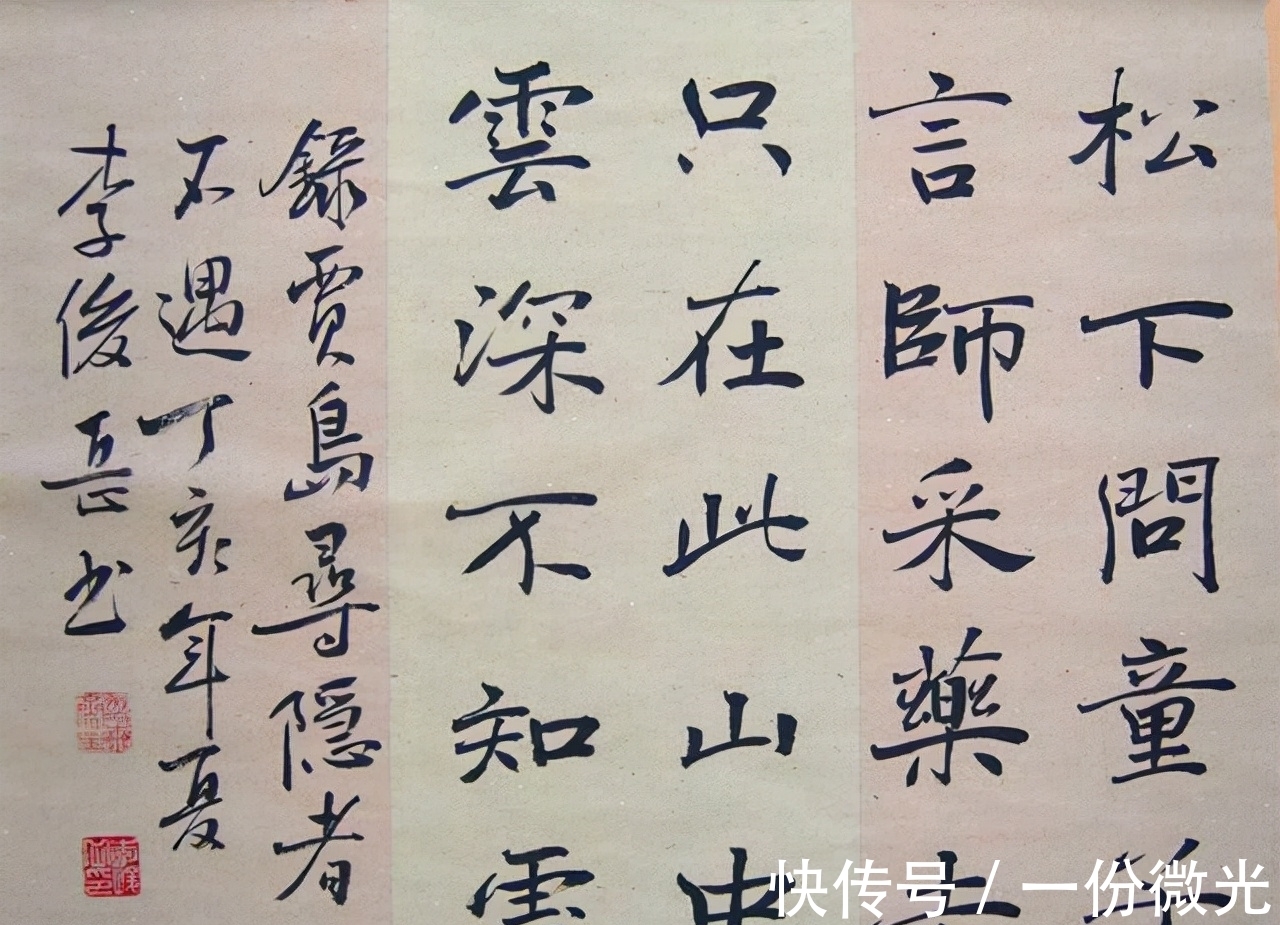 松下問童
言師采藥去
只在此山中
雲深不知
錄賈島尋隐者
不遇丁亥年夏
李俊书
快传号 / 一份微光